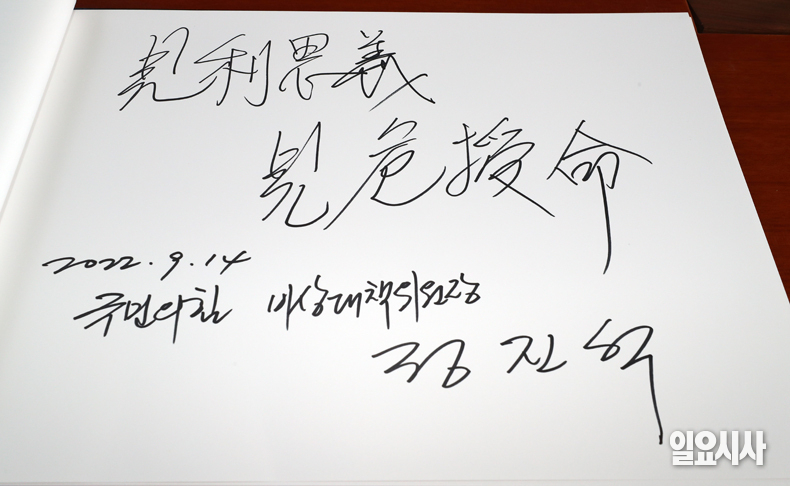 見利思義
見危授命
2022.9.14
국민의힘 비상대책위원장
정진석
일요시사